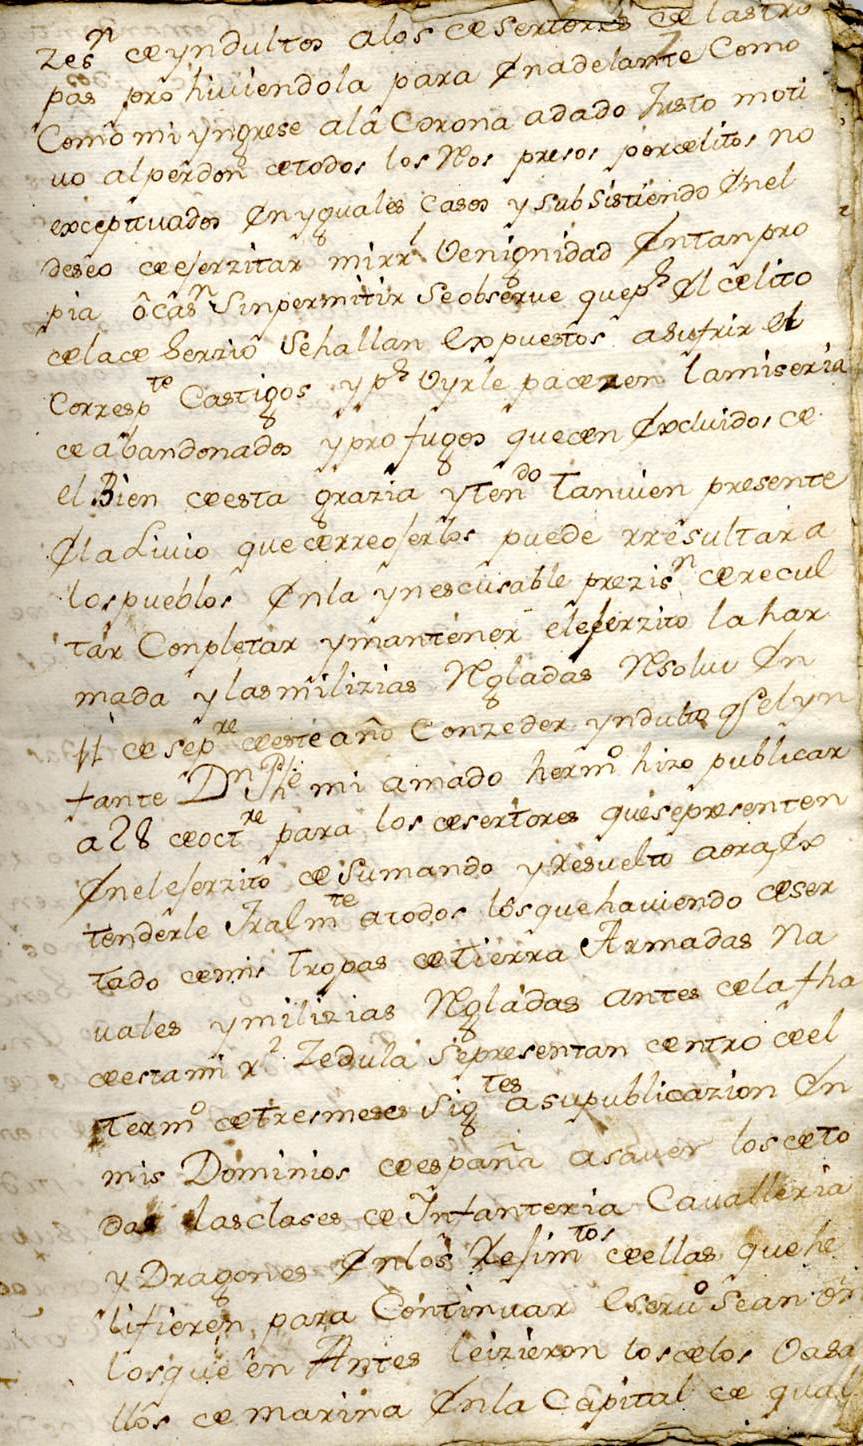 zes.n de yndultos a los desertores de las tro
pas prohiviendola para Enadelante Como
Como mi yngrese a la Corona a dado Justo moti
uo al perdon de todos los Reos presos por delitos no
exceptuados En yguales Casos y subsistiendo Enel
deseo de eserzitar mi rr.l Venignidad En tan pro
pia ocas.n Sin permitir Se observe que p.r El delito
de la deserzio Se hallan Expuestos a sufrir el
Corresp.te Castigos y p.r Uyrle padezen la miseria
de abandonados y profugos queden Excluidos de
el Bien de esta grazia y ten.do tanuien presente
El aLiuio que de rrecoserlos puede rresultar a
los pueblos En la ynescusable prezis.n de recul
tar Conpletar y mantener el eserzito la har
mada y las milizias Rgladas Rsolui En
11 de sep.re de este año Conzeder yndulto q.e el yn
fante D.n Ph.e mi amado herm.o hizo publicar
a 28 de oct.re para los desertores que se presenten
En el eserzito de su mando y Resuelto aora Ex
tenderle Jralm.te a todos los que haviendo deser
tado de mis tropas de tierra Armadas Na
uales y milizias Rgladas antes de la fha
de esta mi r.l Zedula Se presentan dentro de el
term.o de tres meses sig.tes a su publicazion En
mis Dominios de españa a sauer los de to
das las clases de Infanteria Cavalleria
y Dragones En los Resim.tos de ellas que he
lisieren para Continuar El seru.o Sean En
los que en Antes le izieron los de los Vasa
llos de marina En la Capital de qual